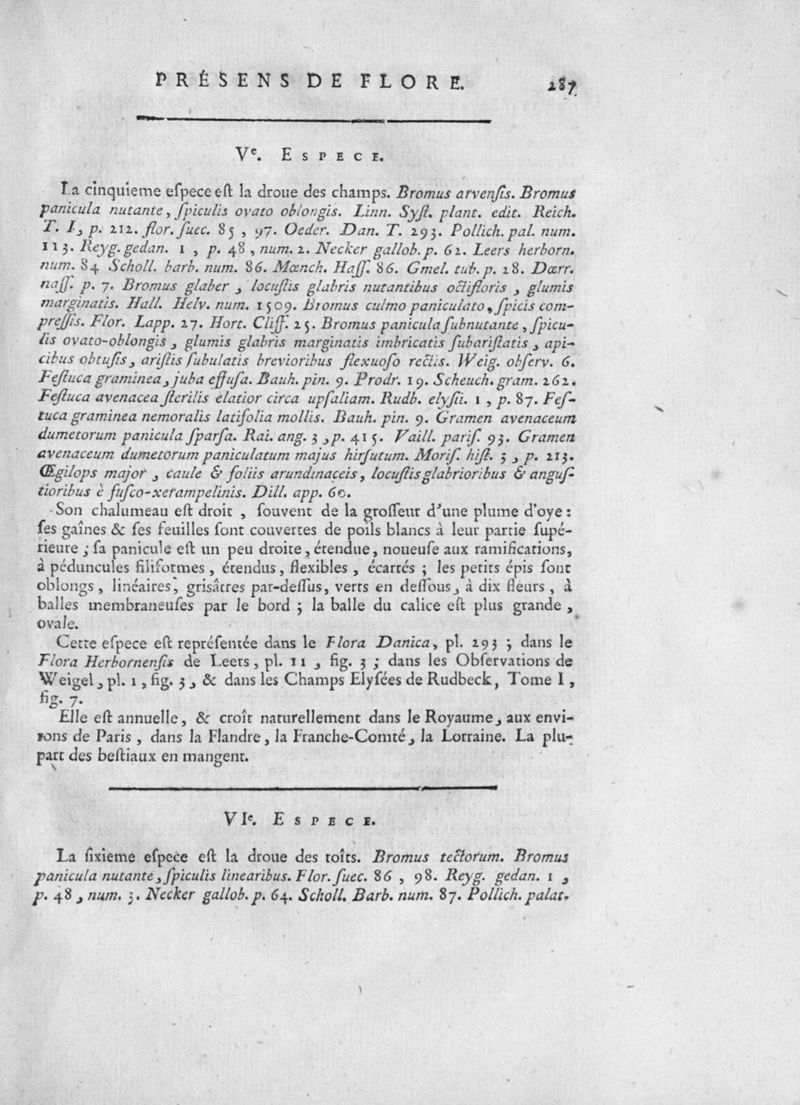 PRÉSENS DE FLORE. 287
Vᵉ. ESPECE.
La cinquieme eſpece eſt la droue des champs. Bromus arvenſis. Bromus
panicula nutante, ſpiculis ovato oblongis. Linn. Syſt. plant. edit. Reich.
T. I, p. 212. flor. ſuec. 85, 97. Oeder. Dan. T. 293. Pollich. pal. num.
113. Reyg. gedan. 1, p. 48, num. 2. Necker gallob. p. 62. Leers herborn.
num. 84 Scholl. barb. num. 86. Mœnch. Haſſ. 86. Gmel. tub. p. 28. Dœrr.
naſſ. p. 7. Bromus glaber, locuſtis glabris nutantibus octifloris, glumis
marginatis. Hall. Helv. num. 1509. Bromus culmo paniculato, ſpicis com-
preſſis. Flor. Lapp. 27. Hort. Cliff. 25. Bromus panicula ſubnutante, ſpicu-
lis ovato-oblongis, glumis glabris marginatis imbricatis ſubariſtatis, api-
cibus obtuſis, ariſtis ſubulatis brevioribus flexuoſo rectis. Weig. obſerv. 6.
Feſtuca graminea, juba effuſa. Bauh. pin. 9. Prodr. 19. Scheuch. gram. 262.
Feſtuca avenacea ſterilis elatior circa upſaliam. Rudb. elyſii. 1, p. 87. Feſ-
tuca graminea nemoralis latifolia mollis. Bauh. pin. 9. Gramen avenaceum
dumetorum panicula ſparſa. Rai. ang. 3, p. 415. Vaill. pariſ. 93. Gramen
avenaceum dumetorum paniculatum majus hirſutum. Moriſ. hiſt. 3, p. 213.
Œgilops major, caule & foliis arundinaceis, locuſtis glabrioribus & anguſ-
tioribus è fuſco-xerampelinis. Dill. app. 60.
Son chalumeau eſt droit, ſouvent de la groſſeur d'une plume d'oye :
ſes gaînes & ſes feuilles ſont couvertes de poils blancs à leur partie ſupé-
rieure ; ſa panicule eſt un peu droite, étendue, noueuſe aux ramifications,
à péduncules filiformes, étendus, flexibles, écartés ; les petits épis ſont
oblongs, linéaires, grisâtres par-deſſus, verts en deſſous, à dix fleurs, à
balles membraneuſes par le bord ; la balle du calice eſt plus grande,
ovale.
Cette eſpece eſt repréſentée dans le Flora Danica, pl. 293 ; dans le
Flora Herbornenſis de Leers, pl. 11, fig. 3 ; dans les Obſervations de
Weigel, pl. 1, fig. 3, & dans les Champs Elyſées de Rudbeck, Tome I,
fig. 7.
Elle eſt annuelle, & croît naturellement dans le Royaume, aux envi-
rons de Paris, dans la Flandre, la Franche-Comté, la Lorraine. La plu-
part des beſtiaux en mangent.
VIᵉ. ESPECE.
La ſixieme eſpece eſt la droue des toîts. Bromus tectorum. Bromus
panicula nutante, ſpiculis linearibus. Flor. ſuec. 86, 98. Reyg. gedan. 1,
p. 48, num. 3. Necker gallob. p. 64. Scholl. Barb. num. 87. Pollich. palat.